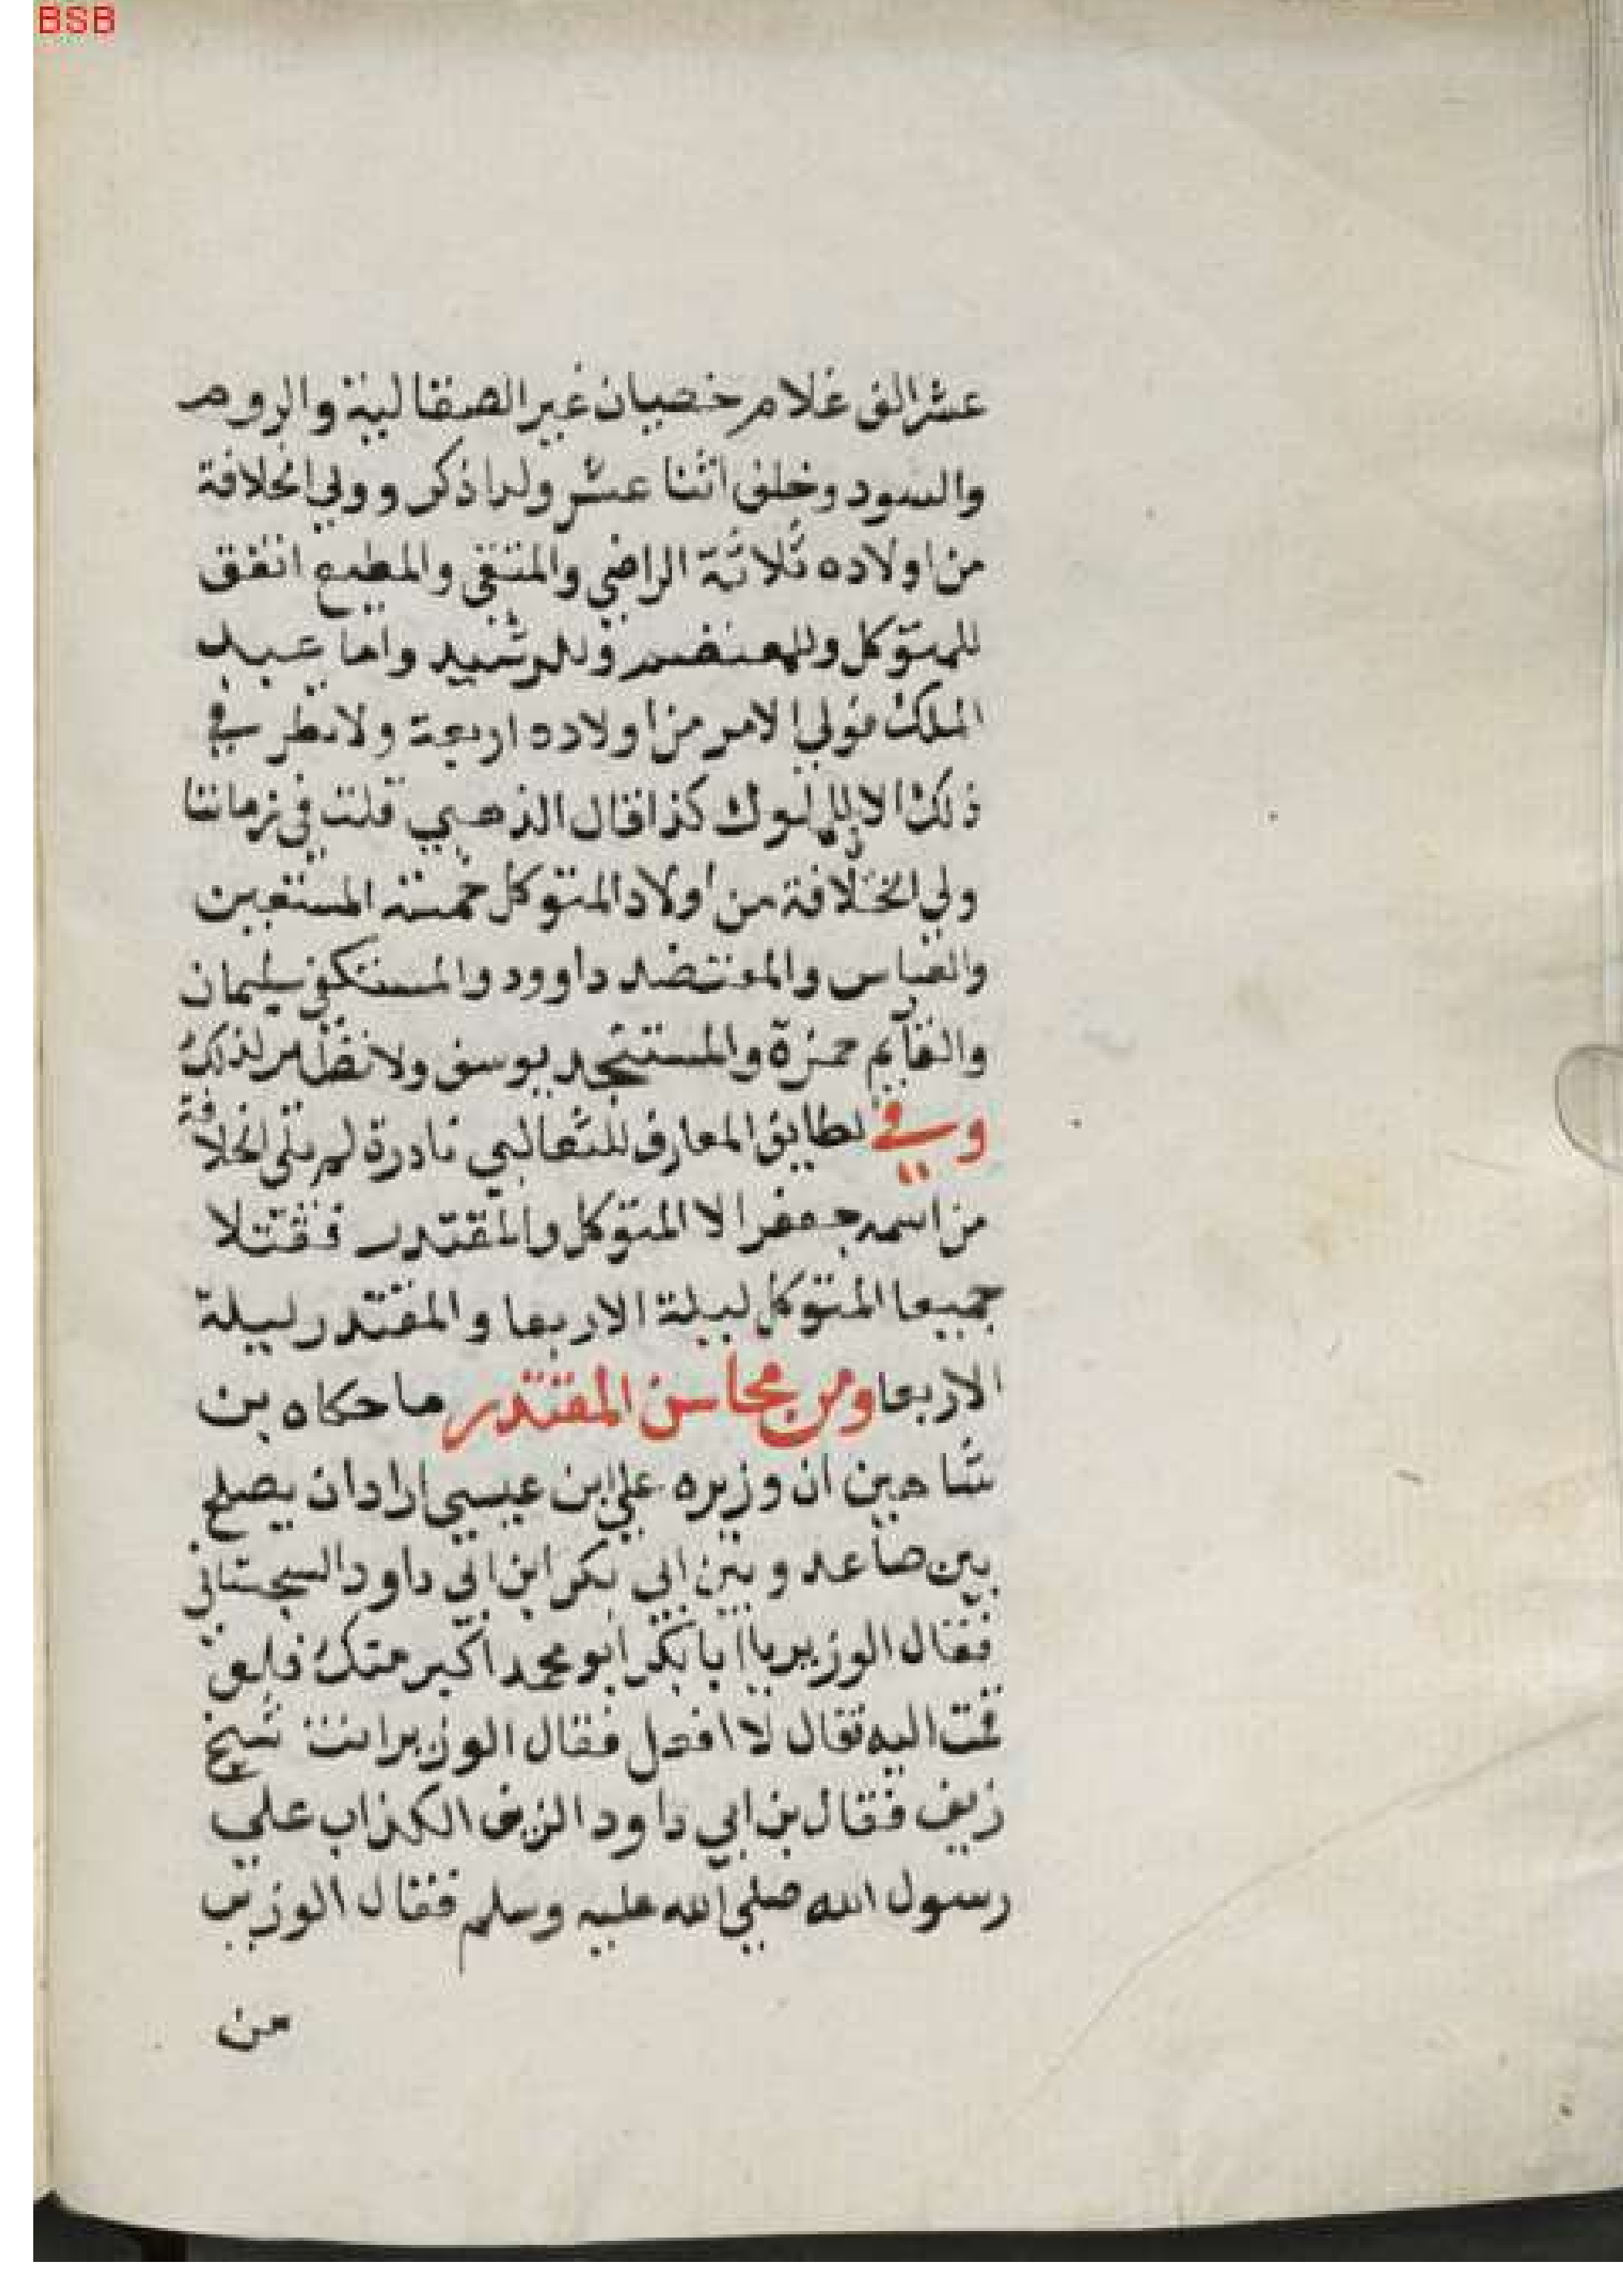 BSB
عشر الف غلام خصيان غير الصقالبة والروم
والسود وخلف اثنا عشر ولدا ذكر وولي الخلافة
من اولاده ثلاثة الراضي والمتقي والمطيع اتفق
للمتوكل وللمعتصم وللرشيد واما عبد
الملك فولي الامر من اولاده اربعة ولا نظر في
ذلك الا للملوك كذا قال الذهبي قلت في زماننا
ولي الخلافة من اولاد المتوكل خمسة المستعين
والعباس والمعتضد داوود والمستكفي سليمان
والقآيم حمزة والمستنجد يوسف ولا نظير لذلك
وفي لطايف المعارف للثعالبي نادرة لم يلي الخلافة
من اسمه جعفر الا المتوكل والمقتدر فقتلا
جميعا المتوكل ليلة الاربعا والمقتدر ليلة
الاربعا ومن محاسن المقتدر ما حكاه بن
شاهين ان وزيره علي ابن عيسي اراد ان يصلح
بين صاعد وبين ابي بكر ابن ابي داود السجستاني
فقال الوزير يا ابا بكر ابو محمد اكبر منك فلو
قمت اليه فقال لا افعل فقال الوزير انت شيخ
زيف فقال بن ابي داود الزيف الكذاب علي
رسول الله صلي الله عليه وسلم فقال الوزير
من